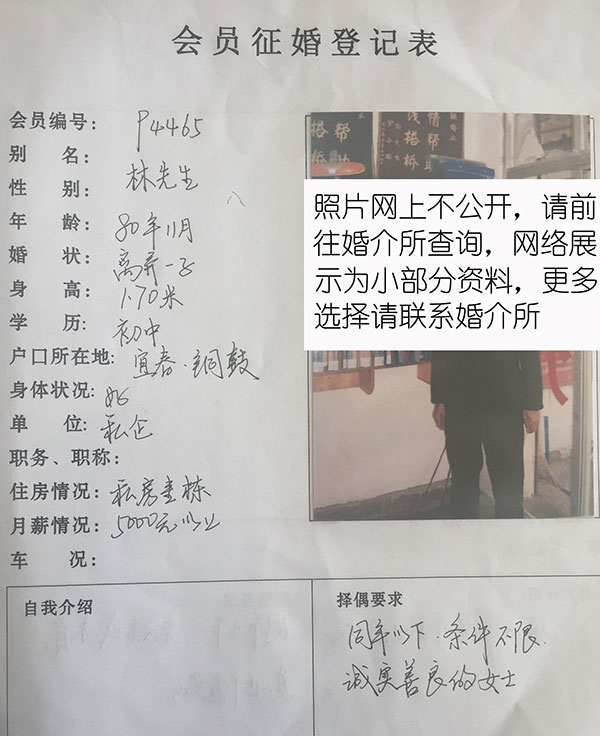 会员征婚登记表
会员编号: P4465
别 名: 林先生
性 别:
年 龄: 80年11月
婚 状: 离异一子
身 高: 1.70米
学 历: 初中
户口所在地: 宜春·铜鼓
身体状况: 好
单 位: 私企
职务、职称:
住房情况: 私房壹栋
月薪情况: 5000元以上
车 况:
照片网上不公开，请前
往婚介所查询，网络展
示为小部分资料，更多
选择请联系婚介所
自我介绍
择偶要求
同年以下·条件不限·
诚实善良的女士